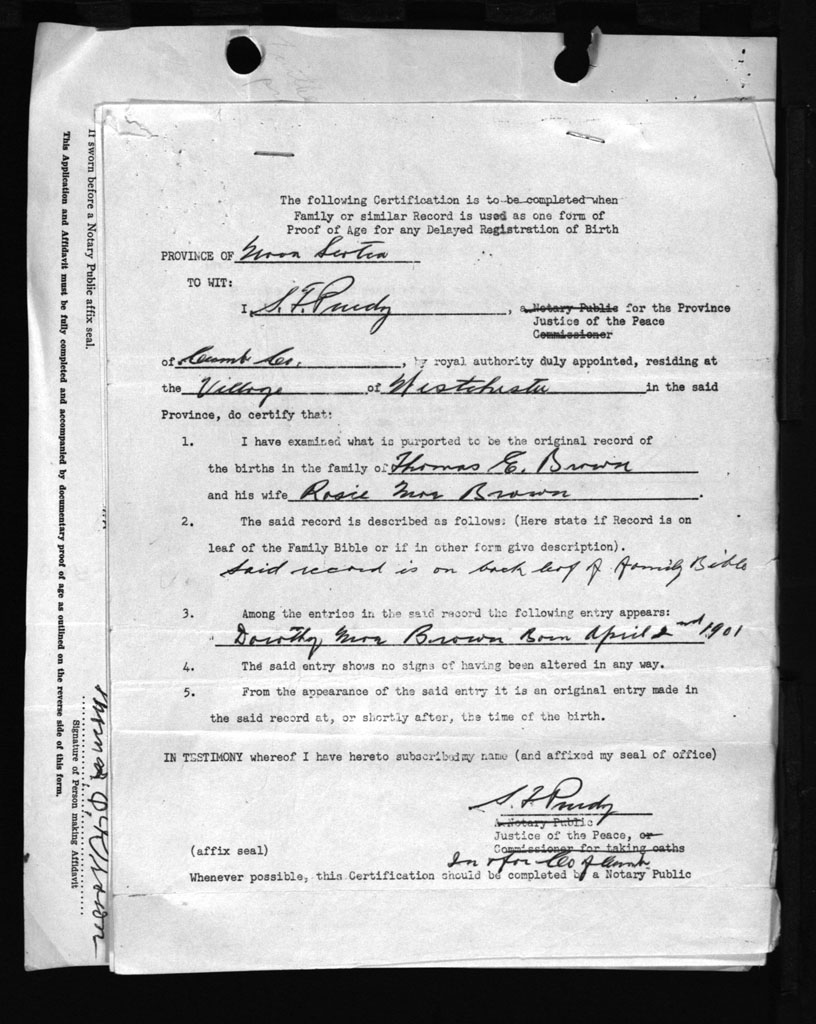 The following Certification is to be completed when
Family or similar Record is used as one form of
Proof of Age for any Delayed Registration of Birth
PROVINCE OF Nova Scotia
TO WIT:
I, S. F. Purdy, a Notary Public for the Province
Justice of the Peace
Commissioner
of Cumb Co., by royal authority duly appointed, residing at
the Village of Westchester in the said
Province, do certify that:
1. I have examined what is purported to be the original record of
the births in the family of Thomas E. Brown
and his wife Rosie Mae Brown.
2. The said record is described as follows: (Here state if Record is on
leaf of the Family Bible or if in other form give description).
Said record is on back leaf of family Bible
3. Among the entries in the said record the following entry appears:
" Dorothy Mae Brown Born April 2nd 1901
4. The said entry shows no signs of having been altered in any way.
5. From the appearance of the said entry it is an original entry made in
the said record at, or shortly after, the time of the birth.
IN TESTIMONY whereof I have hereto subscribed my name (and affixed my seal of office)
S. F. Purdy
A Notary Public
Justice of the Peace, or
(affix seal) Commissioner for taking oaths
In & for Co of Cumb
Whenever possible, this Certification should be completed by a Notary Public
If sworn before a Notary Public affix seal.
This Application and Affidavit must be fully completed and accompanied by documentary proof of age as outlined on the reverse side of this form.
Thomas Brown
Signature of Person making Affidavit